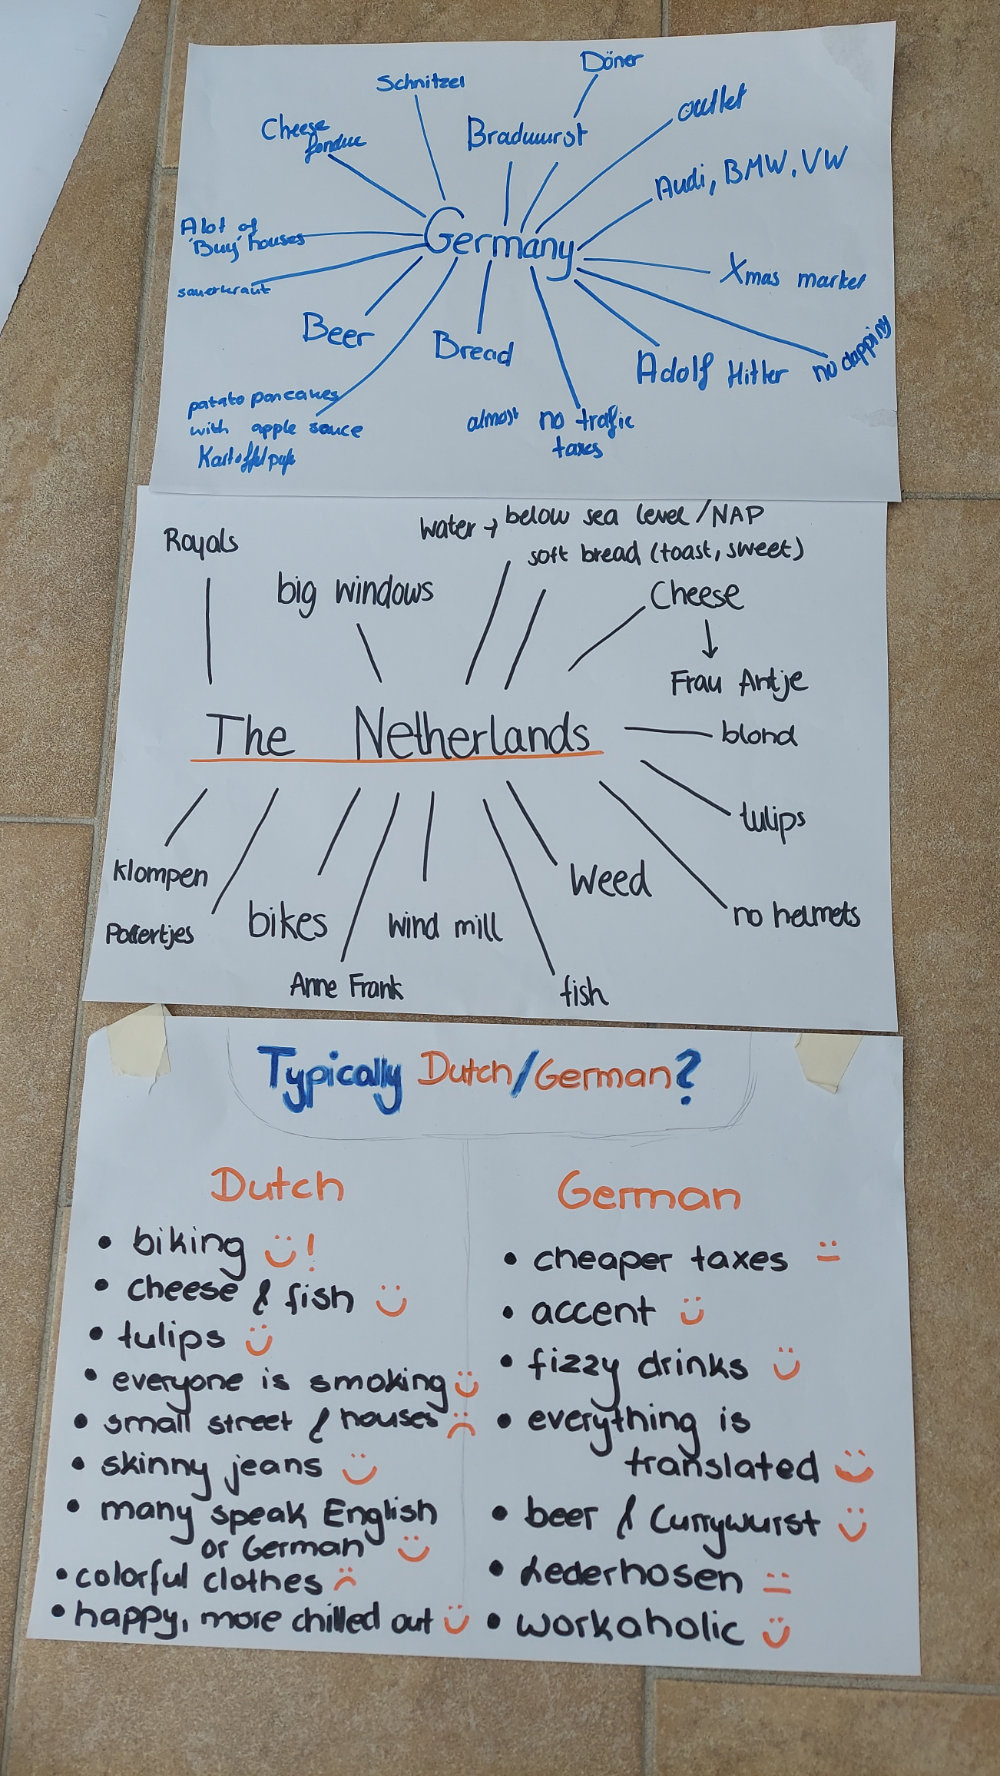 Döner
Schnitzel
outlet
Cheese
fondue
Bradwurst
Audi, BMW, VW
A lot of
'Buy' houses
Germany
sauerkraut
Xmas market
Beer
Bread
Adolf Hitler
no dapping
patato pancakes
with apple sauce
almost no trafic
taxes
Royals
water → below sea level/NAP
soft bread (toast, sweet)
big windows
Cheese
↓
Frau Antje
The Netherlands
blond
tulips
klompen
Weed
Poffertjes
bikes
wind mill
no helmets
Anne Frank
fish
Typically Dutch/German?
Dutch
• biking !
• cheese & fish
• tulips
• everyone is smoking
• small street & houses
• skinny jeans
• many speak English
or German
• colorful clothes
• happy, more chilled out
German
• cheaper taxes
• accent
• fizzy drinks
• everything is
translated
• beer & Currywurst
• Lederhosen
• workaholic